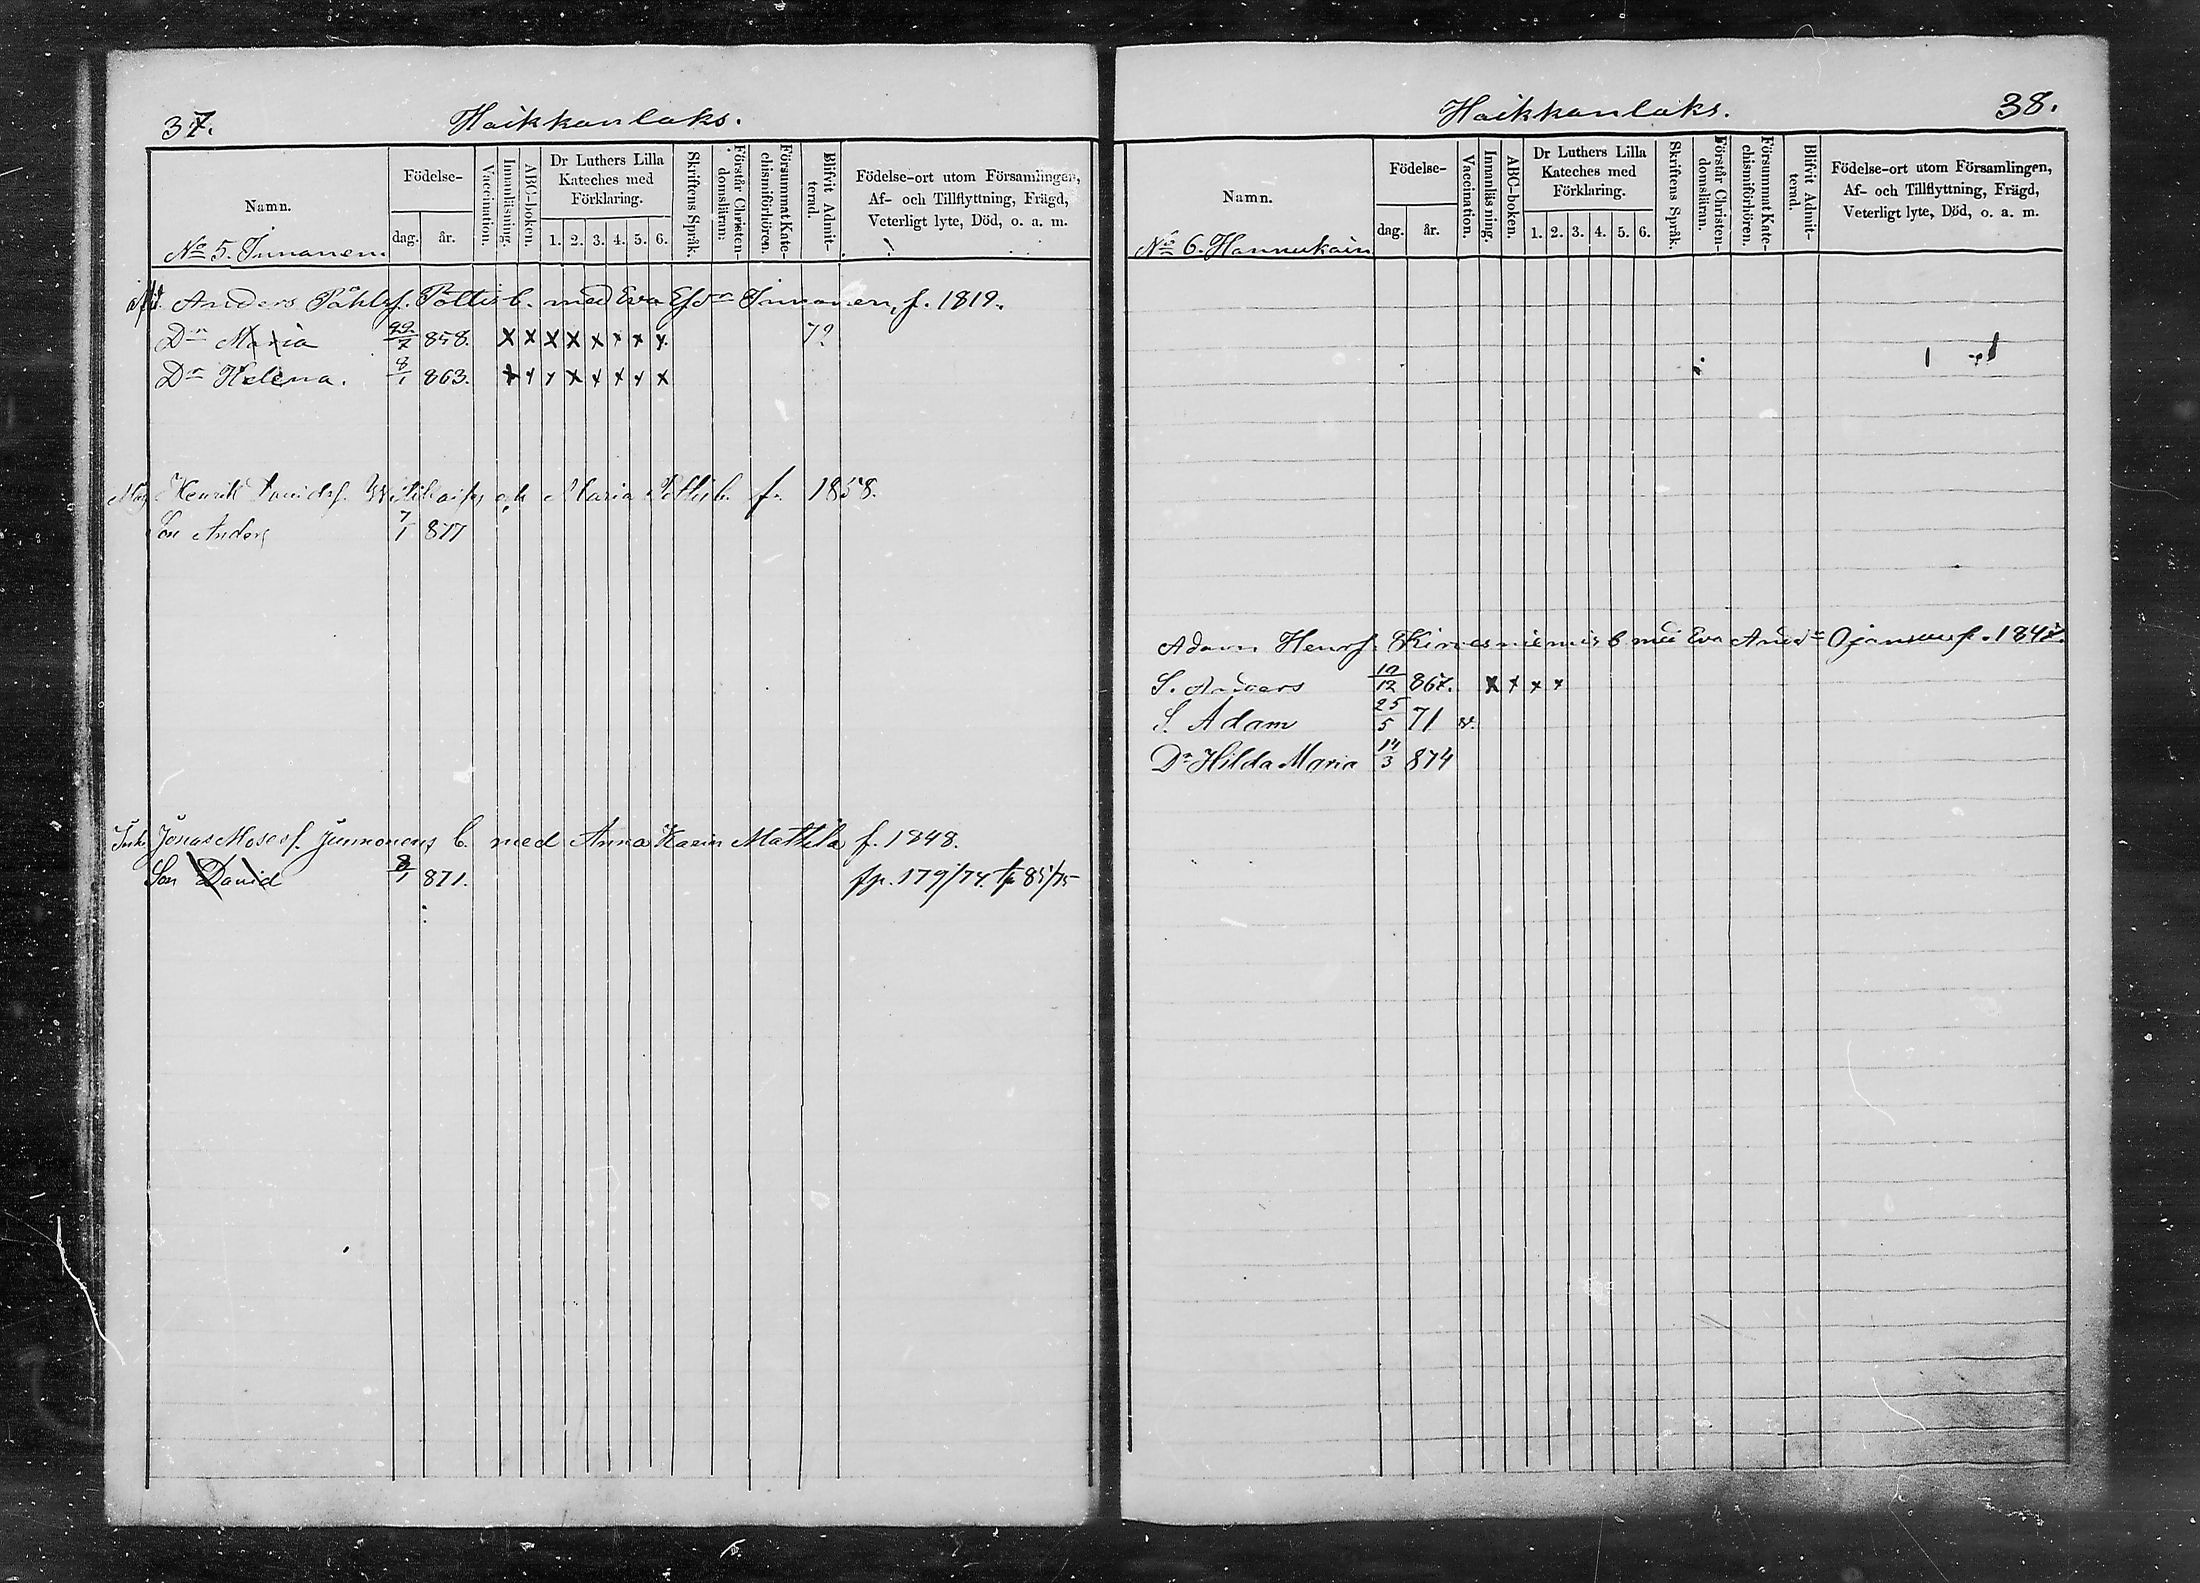 37.
Haikkanlaks.
Namn.
Födelse-
dag.
år.
Vaccination.
Innanläsning.
ABC-boken.
Dr Luthers Lilla Kateches med Förklaring.
1. 2. 3. 4. 5. 6.
Skriftens Språk.
Förstår Christendomsläran.
Försummat Katechismiförhören.
Blifvit Admitterad.
Födelse-ort utom Församlingen,
Af- och Tillflyttning, Frägd,
Veterligt lyte, Död, o. a. m.
No 5. Immanen.
Anders Påhlsf. Pöttis b. med Eva Immonen, f. 1819.
Dr Maria 7 858. x x x x x x x x 72
Dr Helena. 8/1 863. x x x x x x x x
Henrik Davidsf. och Maria Pöttis b. f. 1858.
Son Anders 7/1 877
Jonas Mosesf. Junnonens b. med Anna Karin Mattila f. 1848.
Son David 8/1 871. fp. 179/74. 85/75
38.
Haikkanlaks.
Namn.
Födelse-
dag.
år.
Vaccination.
Innanläsning.
ABC-boken.
Dr Luthers Lilla Kateches med Förklaring.
1. 2. 3. 4. 5. 6.
Skriftens Språk.
Förstår Christendomsläran.
Försummat Katechismiförhören.
Blifvit Admitterad.
Födelse-ort utom Församlingen,
Af- och Tillflyttning, Frägd,
Veterligt lyte, Död, o. a. m.
No 6. Hannukain
Adam Henrsf. Kirvesniemis b. med Eva And. f. 1847.
S. Anders 10/12 867. x x x x
S. Adam 25/5 71 v.
Dr Hilda Maria 14/3 874